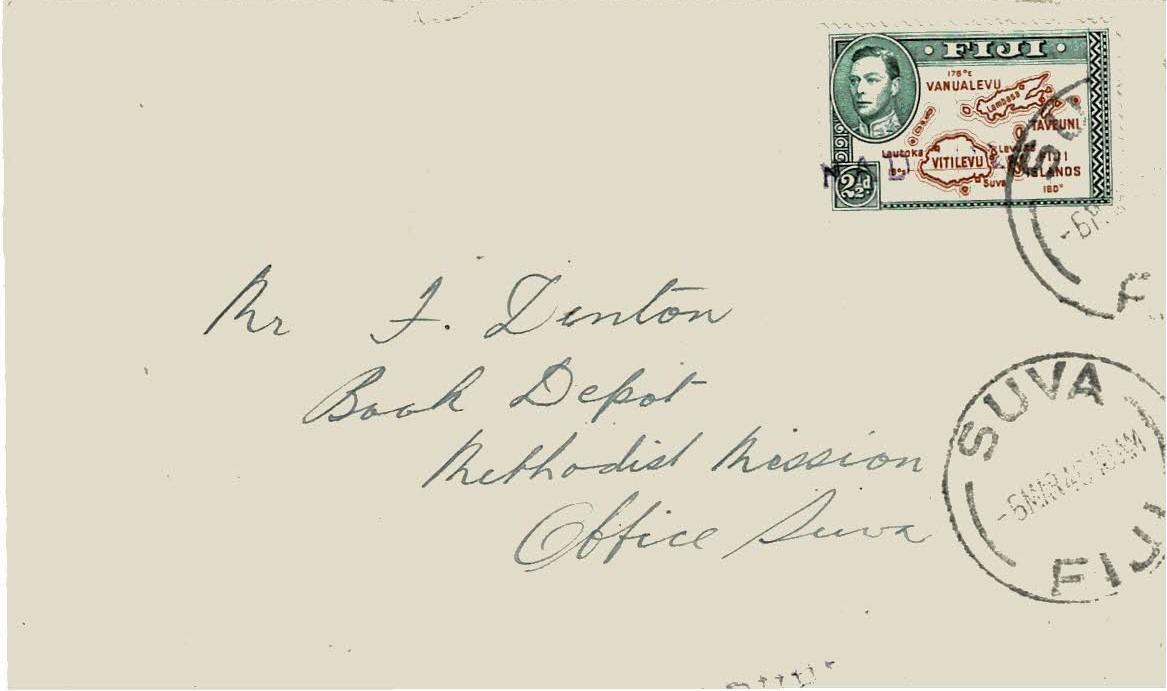 FIJI
178°E
VANUALEVU
Lambasa
TAVEUNI
Lautoka
VITILEVU
Suva
ISLANDS
180°
2½d
NAD
SU
Mr F. Denton
Book Depot
Methodist Mission
Office Suva
SUVA
FIJI